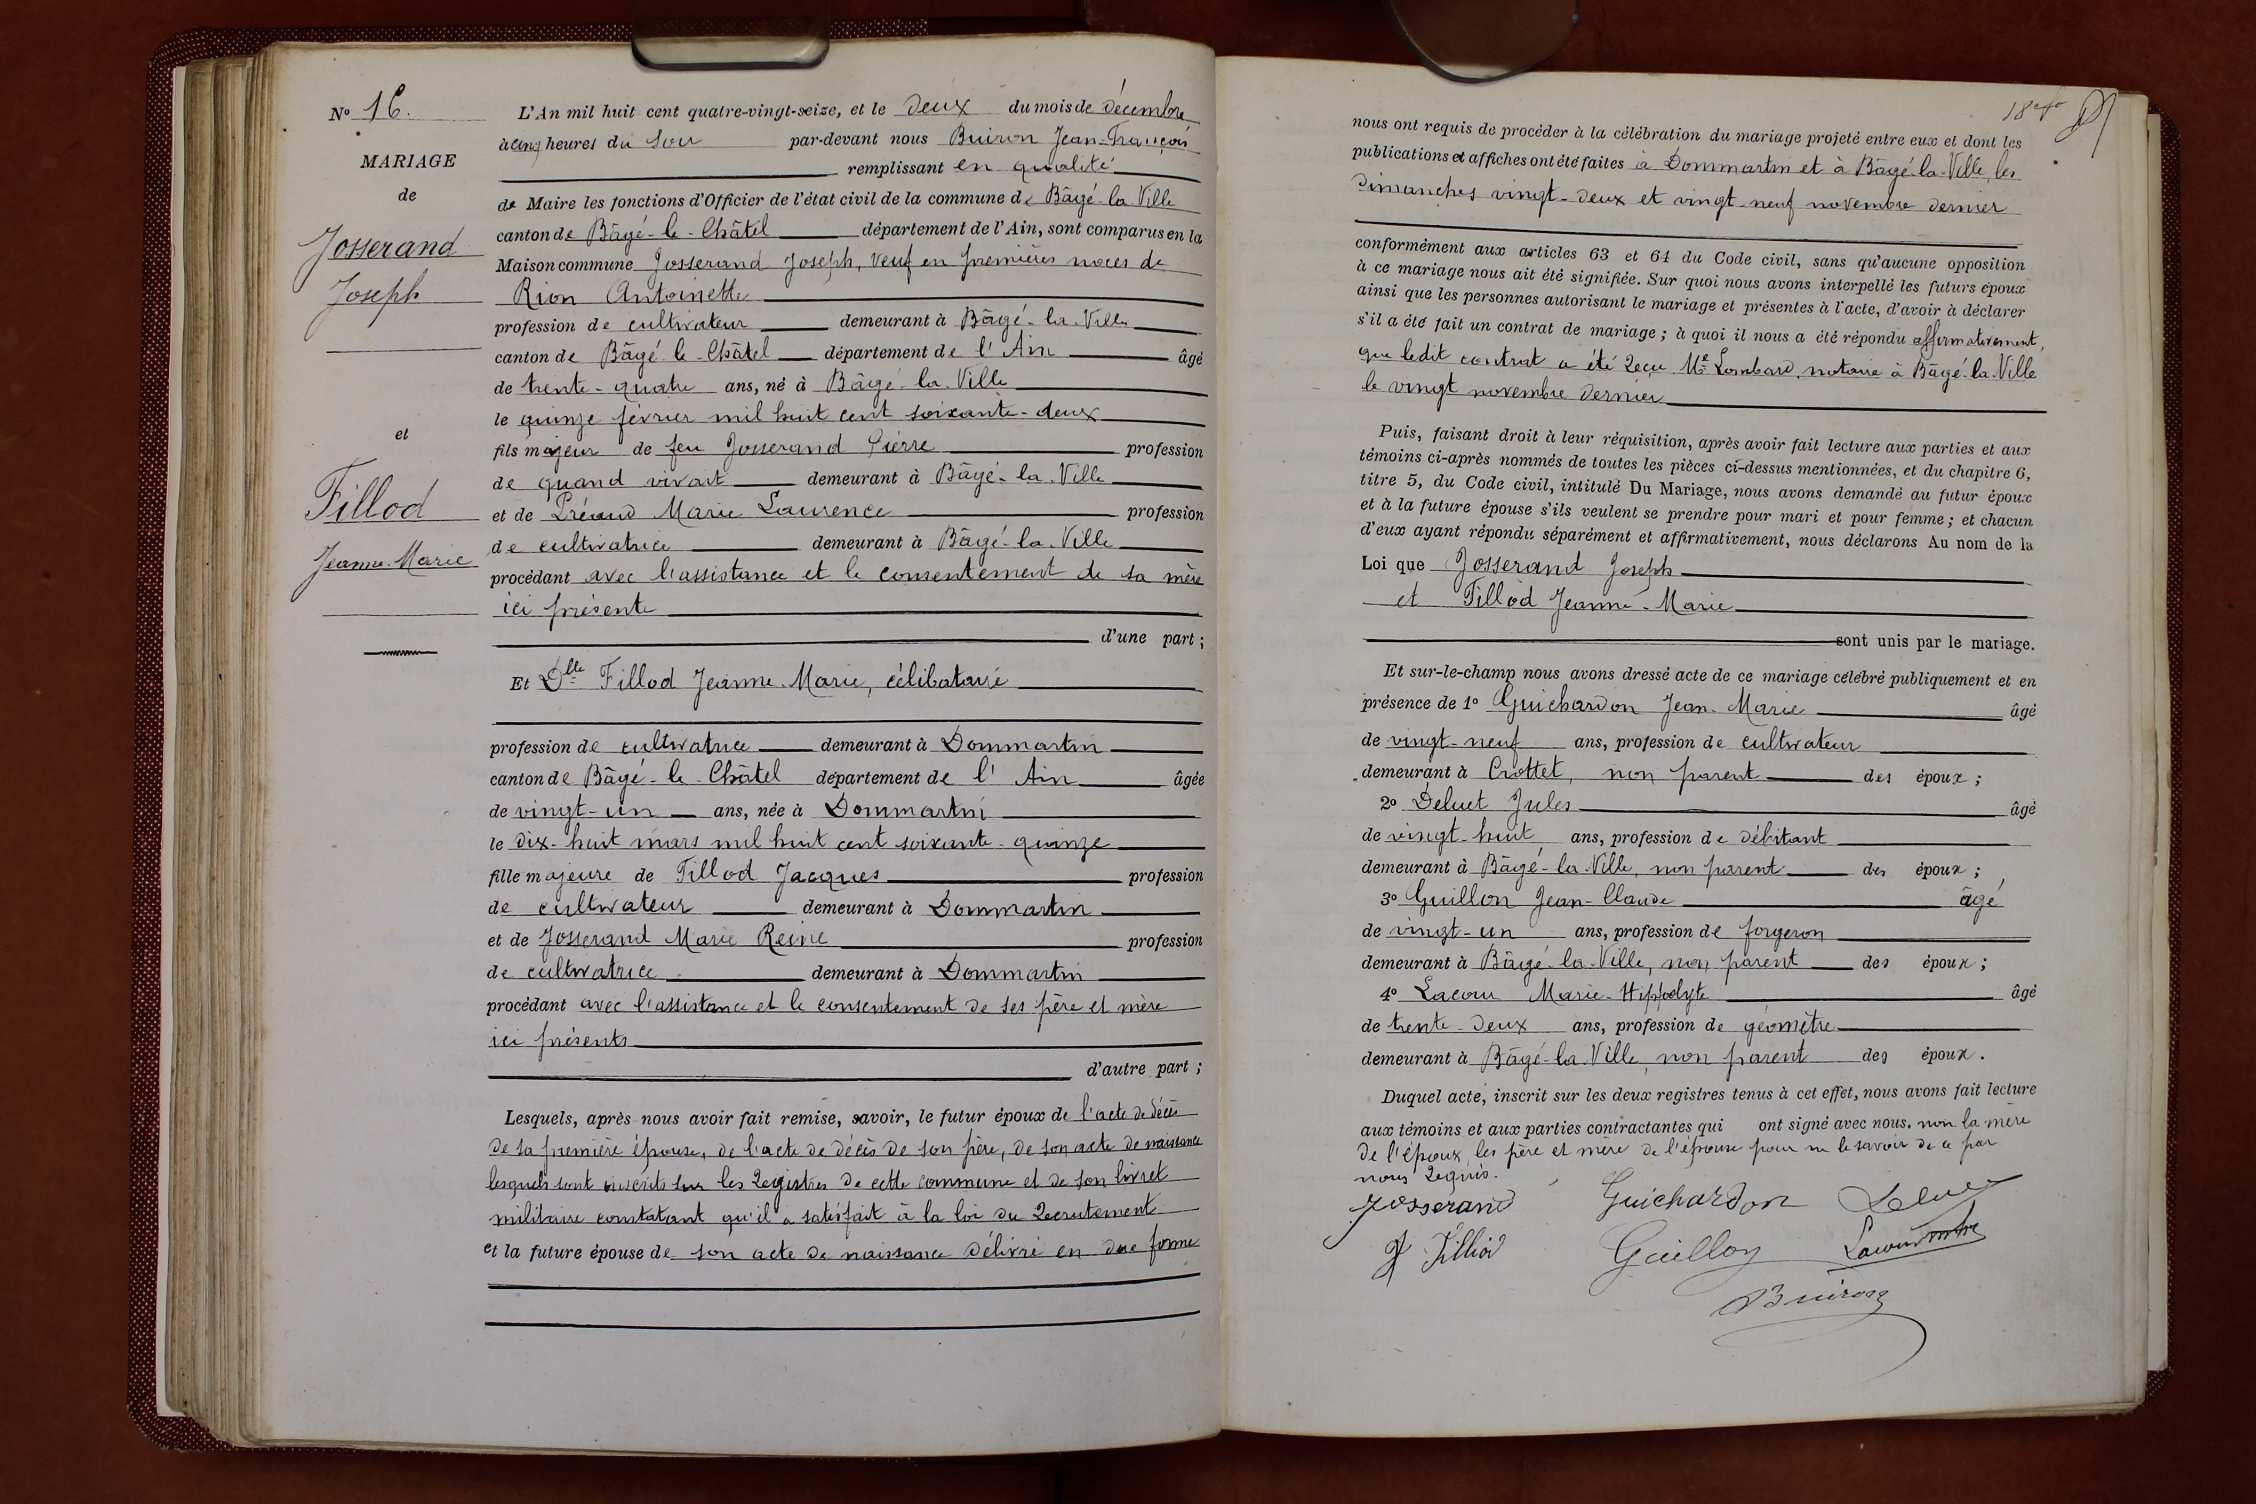 No 16.
MARIAGE
de
Josserand
Joseph
et
Fillod
Jeanne-Marie
L'An mil huit cent quatre-vingt-seize, et le deux du mois de décembre
à cinq heures du soir par-devant nous Buiron Jean-François
remplissant en qualité
de Maire les fonctions d'Officier de l'état civil de la commune de Bâgé-la-Ville
canton de Bâgé-le-Châtel département de l'Ain, sont comparus en la
Maison commune Josserand Joseph, veuf en premières noces de
Rion Antoinette
profession de cultivateur demeurant à Bâgé-la-Ville
canton de Bâgé-le-Châtel département de l'Ain âgé
de trente-quatre ans, né à Bâgé-la-Ville
le quinze février mil huit cent soixante-deux
fils majeur de feu Josserand Pierre profession
de quand vivait demeurant à Bâgé-la-Ville
et de Préaud Marie Laurence profession
de cultivatrice demeurant à Bâgé-la-Ville
procédant avec l'assistance et le consentement de sa mère
ici présente
d'une part ;
Et Dlle Fillod Jeanne-Marie, célibataire
profession de cultivatrice demeurant à Dommartin
canton de Bâgé-le-Châtel département de l'Ain âgée
de vingt-un ans, née à Dommartin
le dix-huit mars mil huit cent soixante-quinze
fille majeure de Fillod Jacques profession
de cultivateur demeurant à Dommartin
et de Josserand Marie Reine profession
de cultivatrice demeurant à Dommartin
procédant avec l'assistance et le consentement de ses père et mère
ici présents
d'autre part ;
Lesquels, après nous avoir fait remise, savoir, le futur époux de l'acte de décès
de sa première épouse, de l'acte de décès de son père, de son acte de naissance
lesquels sont inscrits sur les registres de cette commune et de son livret
militaire constatant qu'il a satisfait à la loi du recrutement
et la future épouse de son acte de naissance délivré en due forme
nous ont requis de procéder à la célébration du mariage projeté entre eux et dont les
publications et affiches ont été faites à Dommartin et à Bâgé-la-Ville, les
dimanches vingt-deux et vingt-neuf novembre dernier
conformément aux articles 63 et 64 du Code civil, sans qu'aucune opposition
à ce mariage nous ait été signifiée. Sur quoi nous avons interpellé les futurs époux
ainsi que les personnes autorisant le mariage et présentes à l'acte, d'avoir à déclarer
s'il a été fait un contrat de mariage ; à quoi il nous a été répondu affirmativement,
que ledit contrat a été reçu Me Lombard, notaire à Bâgé-la-Ville
le vingt novembre dernier
Puis, faisant droit à leur réquisition, après avoir fait lecture aux parties et aux
témoins ci-après nommés de toutes les pièces ci-dessus mentionnées, et du chapitre 6,
titre 5, du Code civil, intitulé Du Mariage, nous avons demandé au futur époux
et à la future épouse s'ils veulent se prendre pour mari et pour femme ; et chacun
d'eux ayant répondu séparément et affirmativement, nous déclarons Au nom de la
Loi que Josserand Joseph
et Fillod Jeanne-Marie
sont unis par le mariage.
Et sur-le-champ nous avons dressé acte de ce mariage célébré publiquement et en
présence de 1o Guichardon Jean-Marie âgé
de vingt-neuf ans, profession de cultivateur
demeurant à Crottet, non parent des époux ;
2o Deluet Jules âgé
de vingt-huit ans, profession de débitant
demeurant à Bâgé-la-Ville, non parent des époux ;
3o Guillon Jean-Claude âgé
de vingt-un ans, profession de forgeron
demeurant à Bâgé-la-Ville, non parent des époux ;
4o Lacour Marie-Hippolyte âgé
de trente-deux ans, profession de géomètre
demeurant à Bâgé-la-Ville, non parent des époux.
Duquel acte, inscrit sur les deux registres tenus à cet effet, nous avons fait lecture
aux témoins et aux parties contractantes qui ont signé avec nous. non la mère
de l'époux, les père et mère de l'épouse pour ne le savoir de ce par
nous requis.
Josserand Guichardon
J Filliod Guillon
Buiron